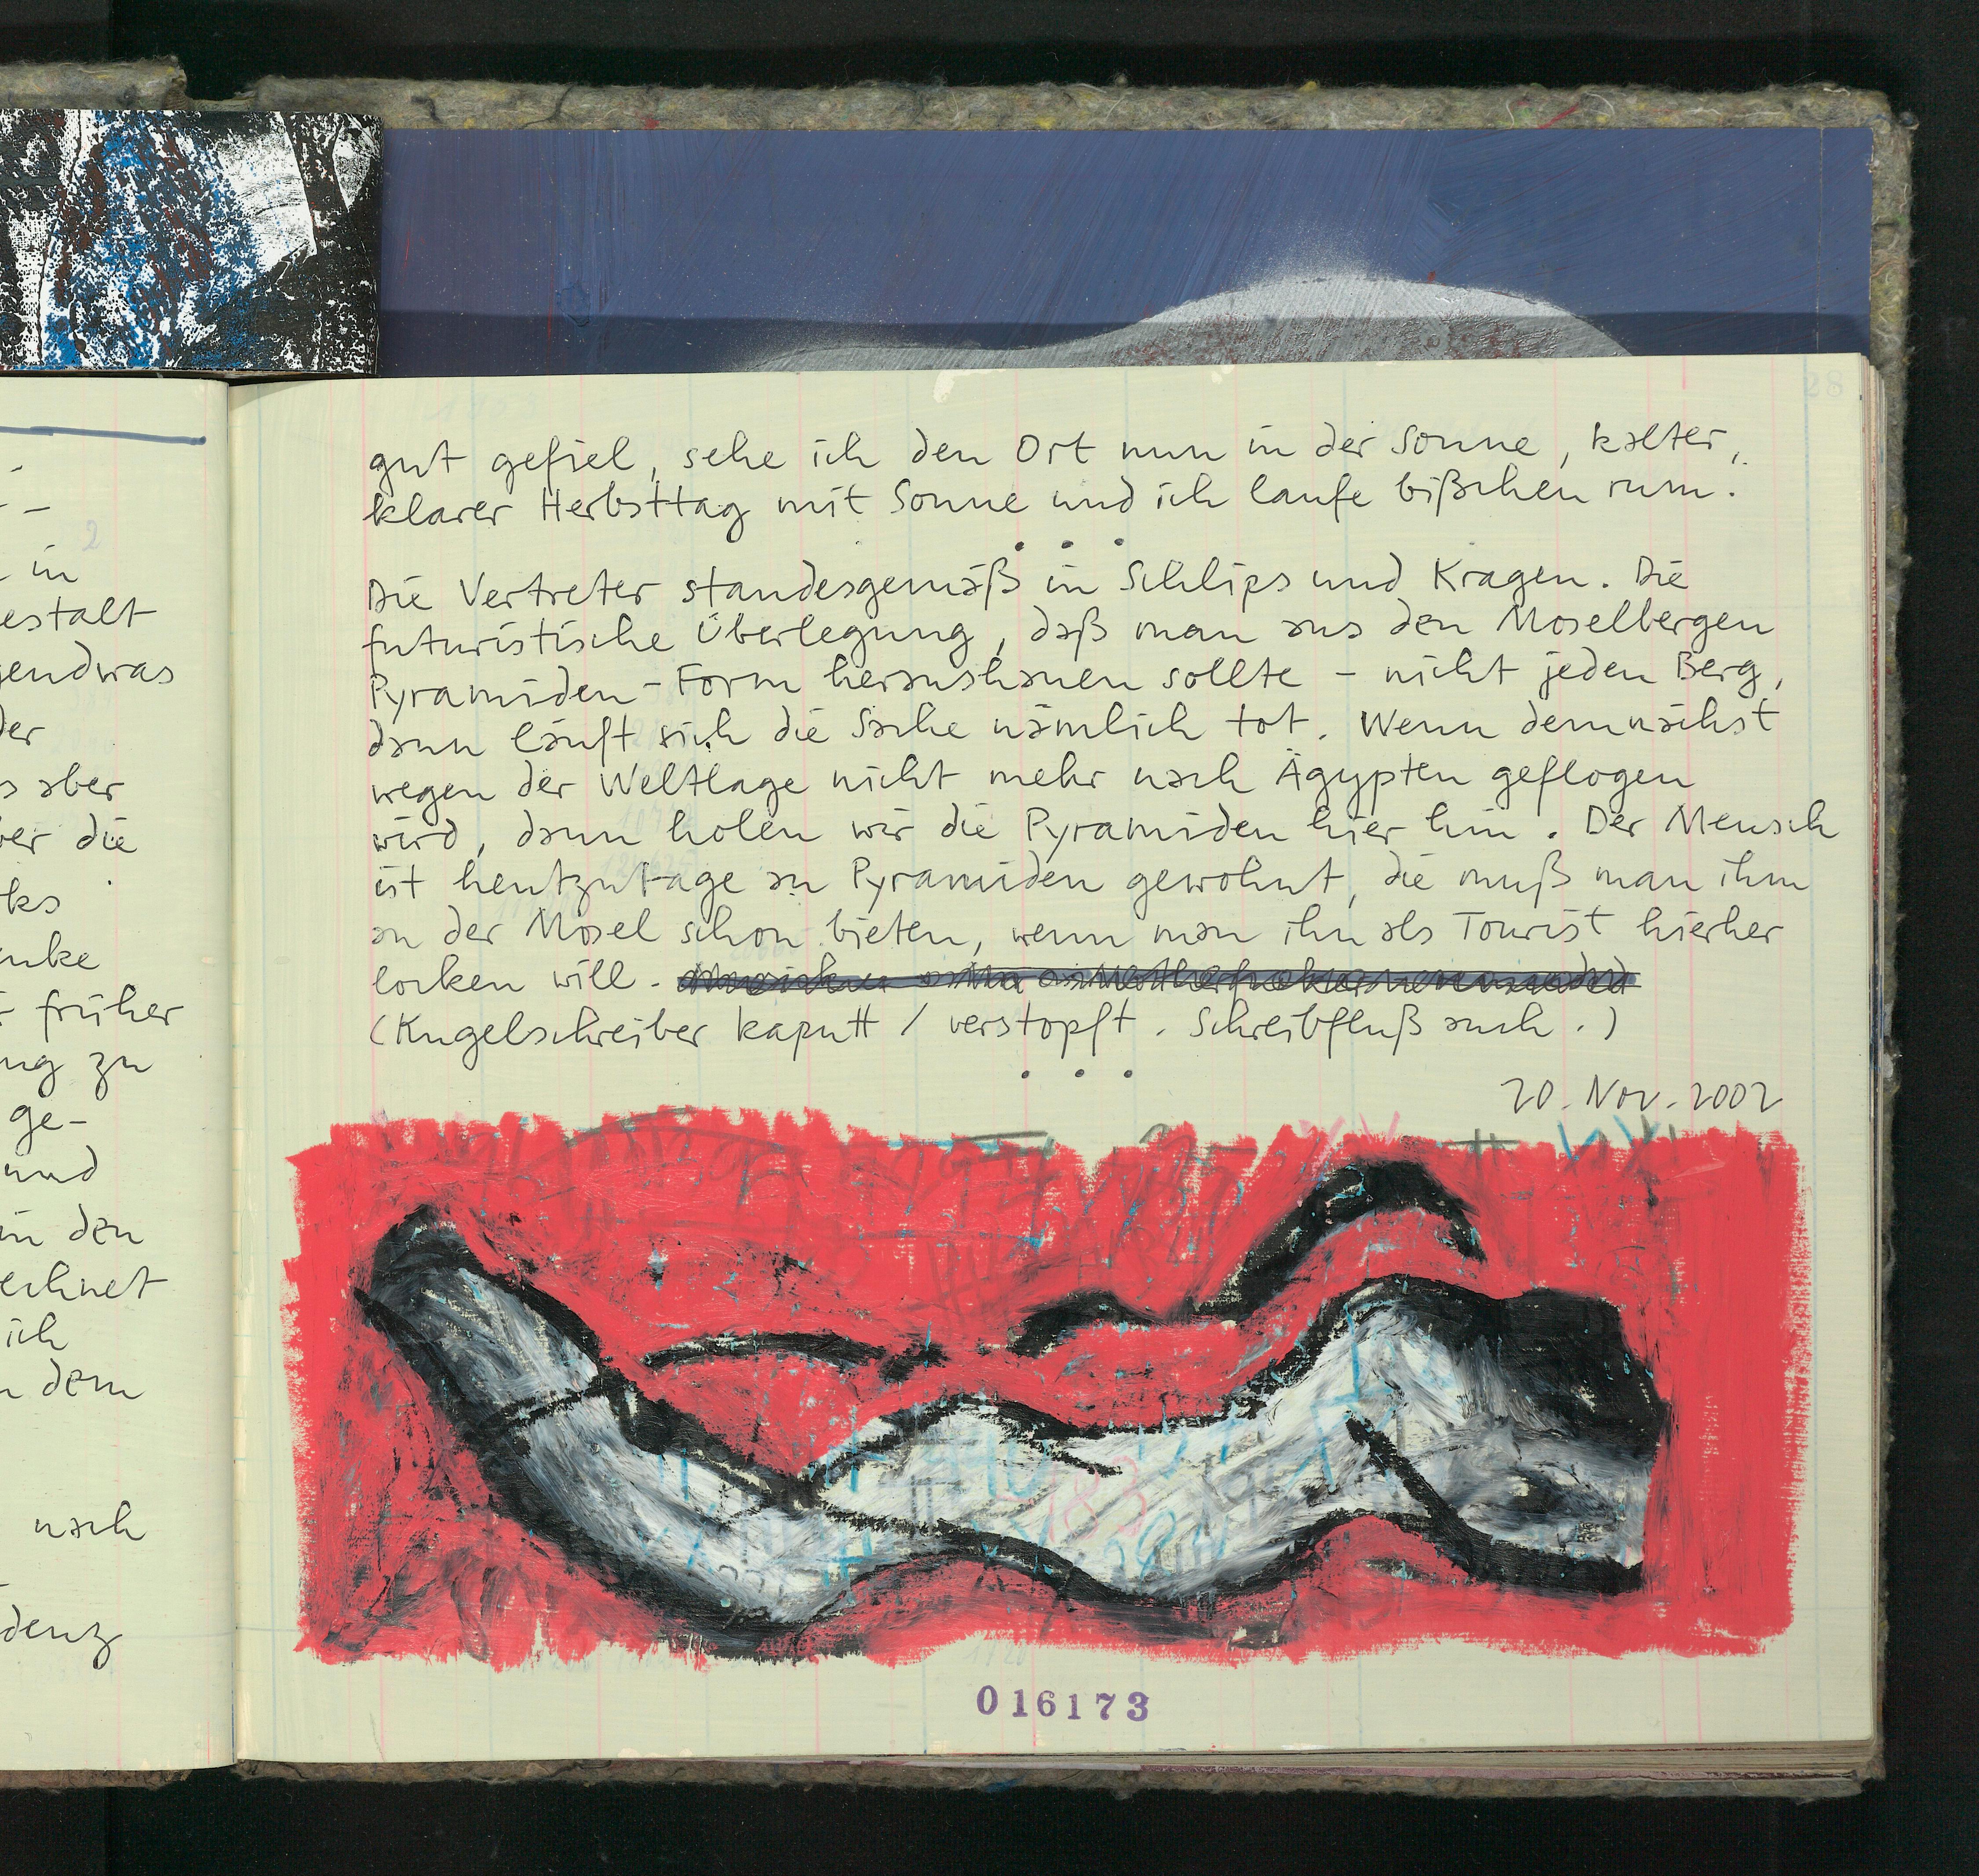 in
estalt
gendwas
der
s aber
ber die
ks
enke
r früher
ung zu
ge-
und
in den
echnet
ich
n dem
nach
denz
28
gut gefiel, sehe ich den Ort nun in der Sonne, kalter,
klarer Herbsttag mit Sonne und ich laufe bißchen rum.
. . .
Die Vertreter standesgemäß in Schlips und Kragen. Die
futuristische Überlegung, daß man aus den Moselbergen
Pyramiden-Form heraushauen sollte – nicht jeden Berg,
dann läuft sich die Sache nämlich tot. Wenn demnächst
wegen der Weltlage nicht mehr nach Ägypten geflogen
wird, dann holen wir die Pyramiden hier hin. Der Mensch
ist heutzutage an Pyramiden gewohnt, die muß man ihm
an der Mosel schon bieten, wenn man ihn als Tourist hierher
locken will.
(Kugelschreiber kaputt / verstopft. Schreibfluß auch.)
. . .
20. Nov. 2002
016173